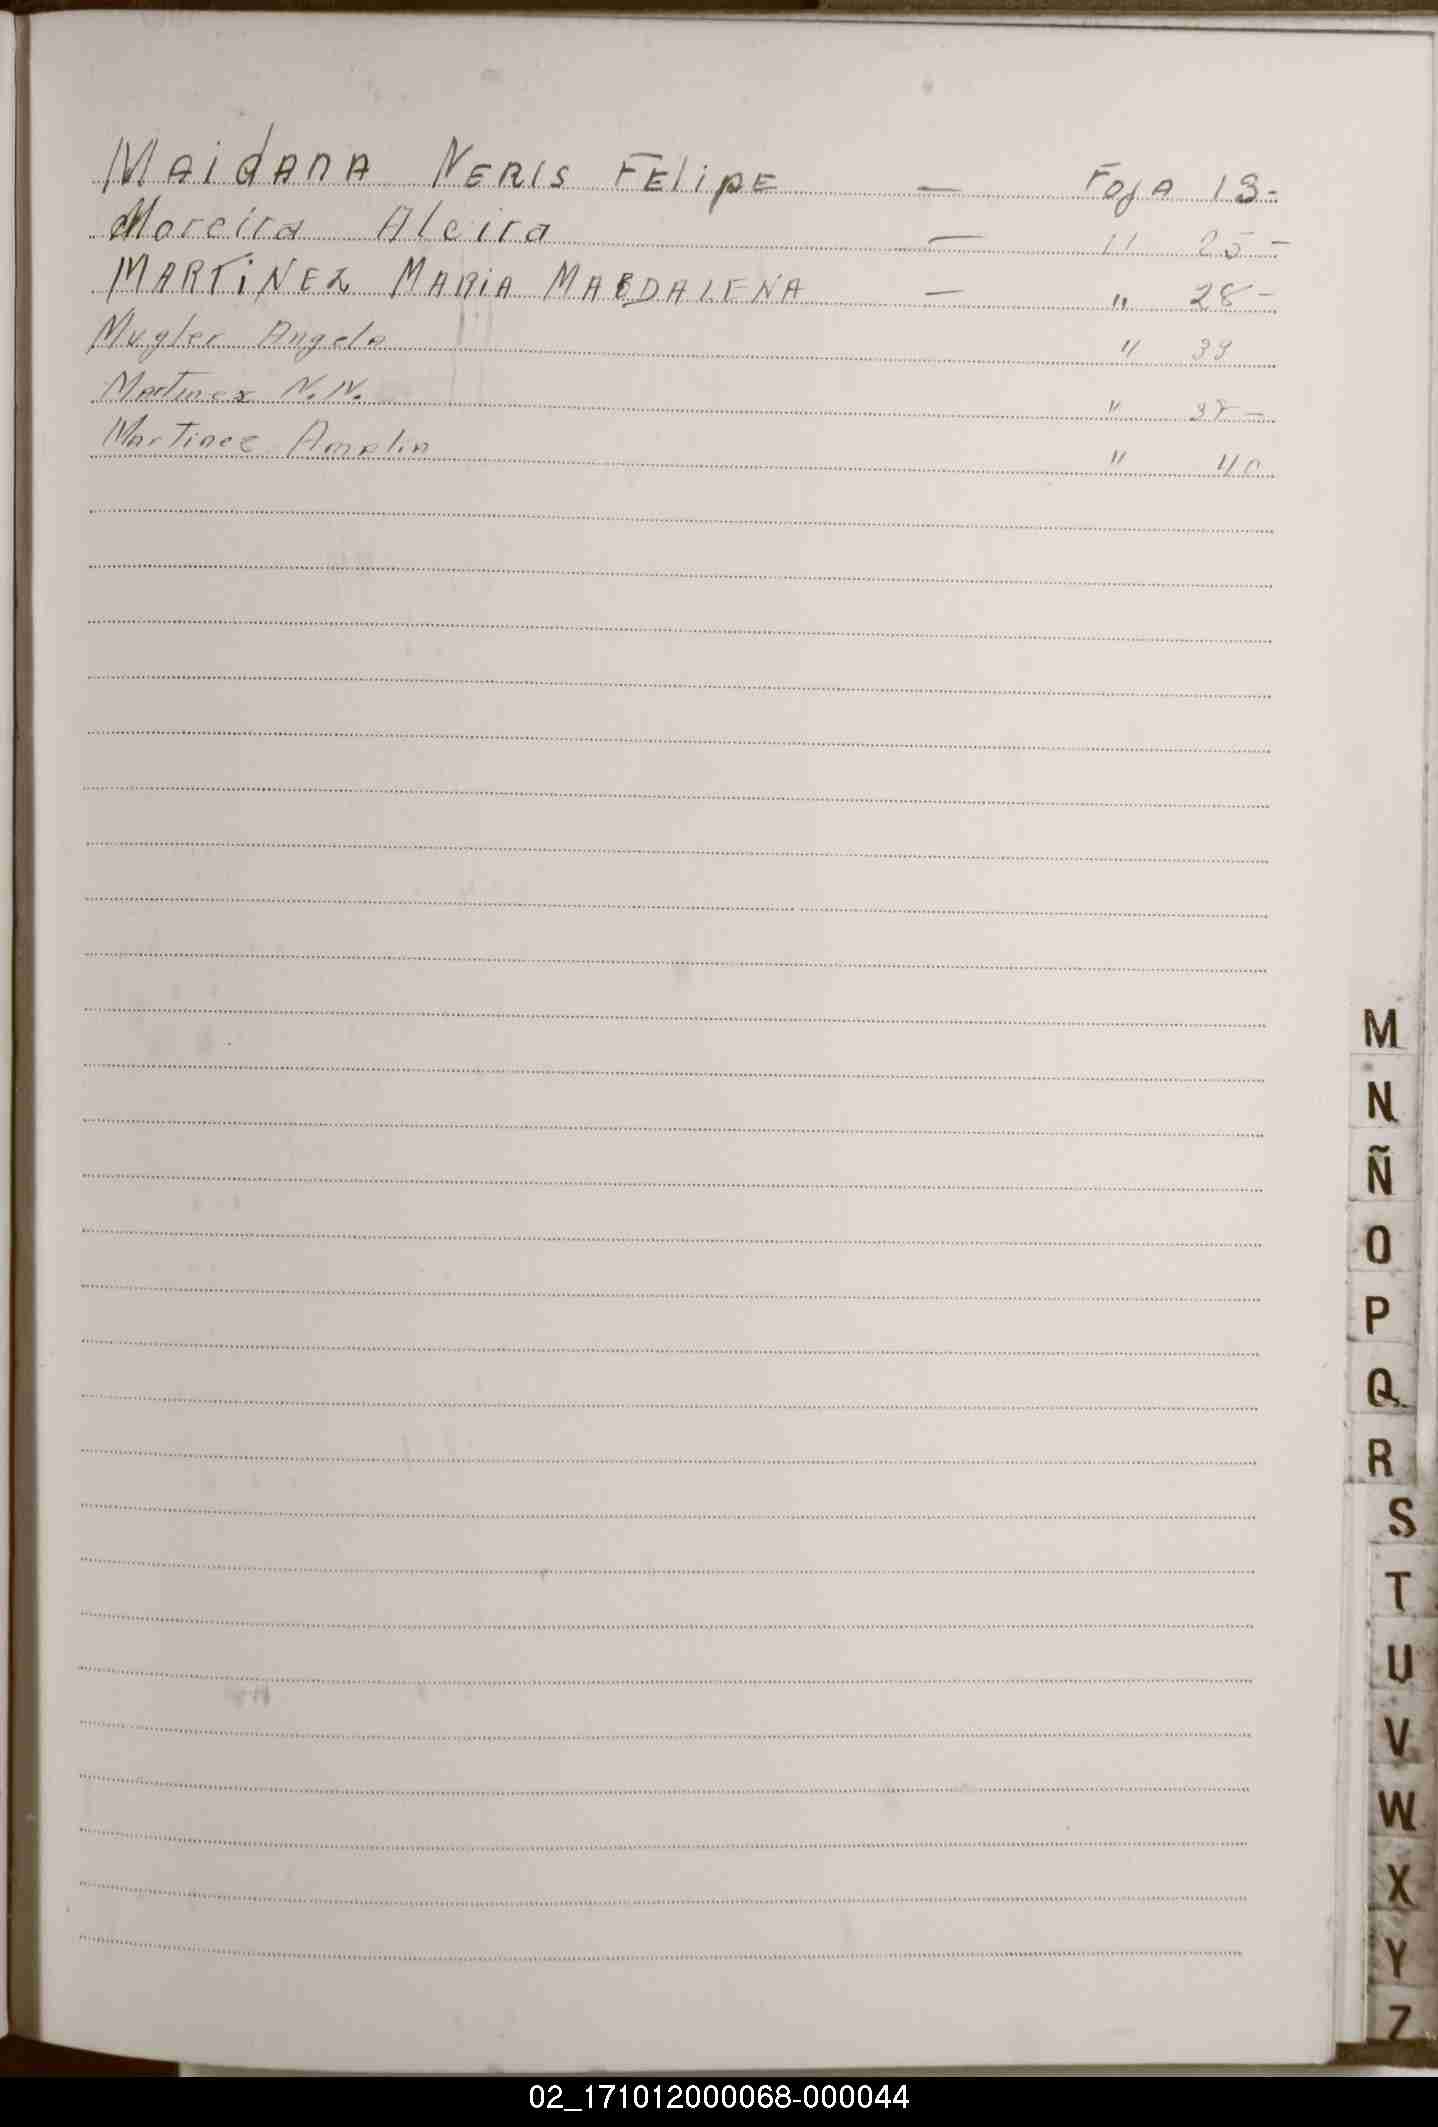 Maidana Neris Felipe — Foja 13-
Moreira Alcira — " 25 -
MARTiNEZ MARiA MAGDALENA — " 28 -
Mugler Angela " 39
Martinez N.N. " 38 -
Martinez Amelia " 40
M
N
Ñ
O
P
Q
R
S
T
U
V
W
X
Y
Z
02_171012000068-000044